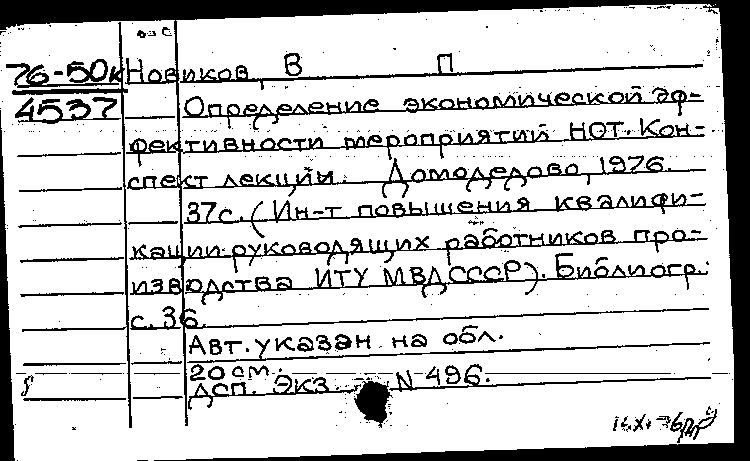 76-50к Новиков, В П
4537 Определение экономической эф-
фективности мероприятий НОТ. Кон-
спект лекции. Домодедово, 1976.
37с. (Ин-т повышения квалифи-
кации руководящих работников про-
изводства ИТУ МВД СССР). Библиогр.:
с. 36.
Авт. указан на обл.
20 см.
ДСП. Экз. N 496.